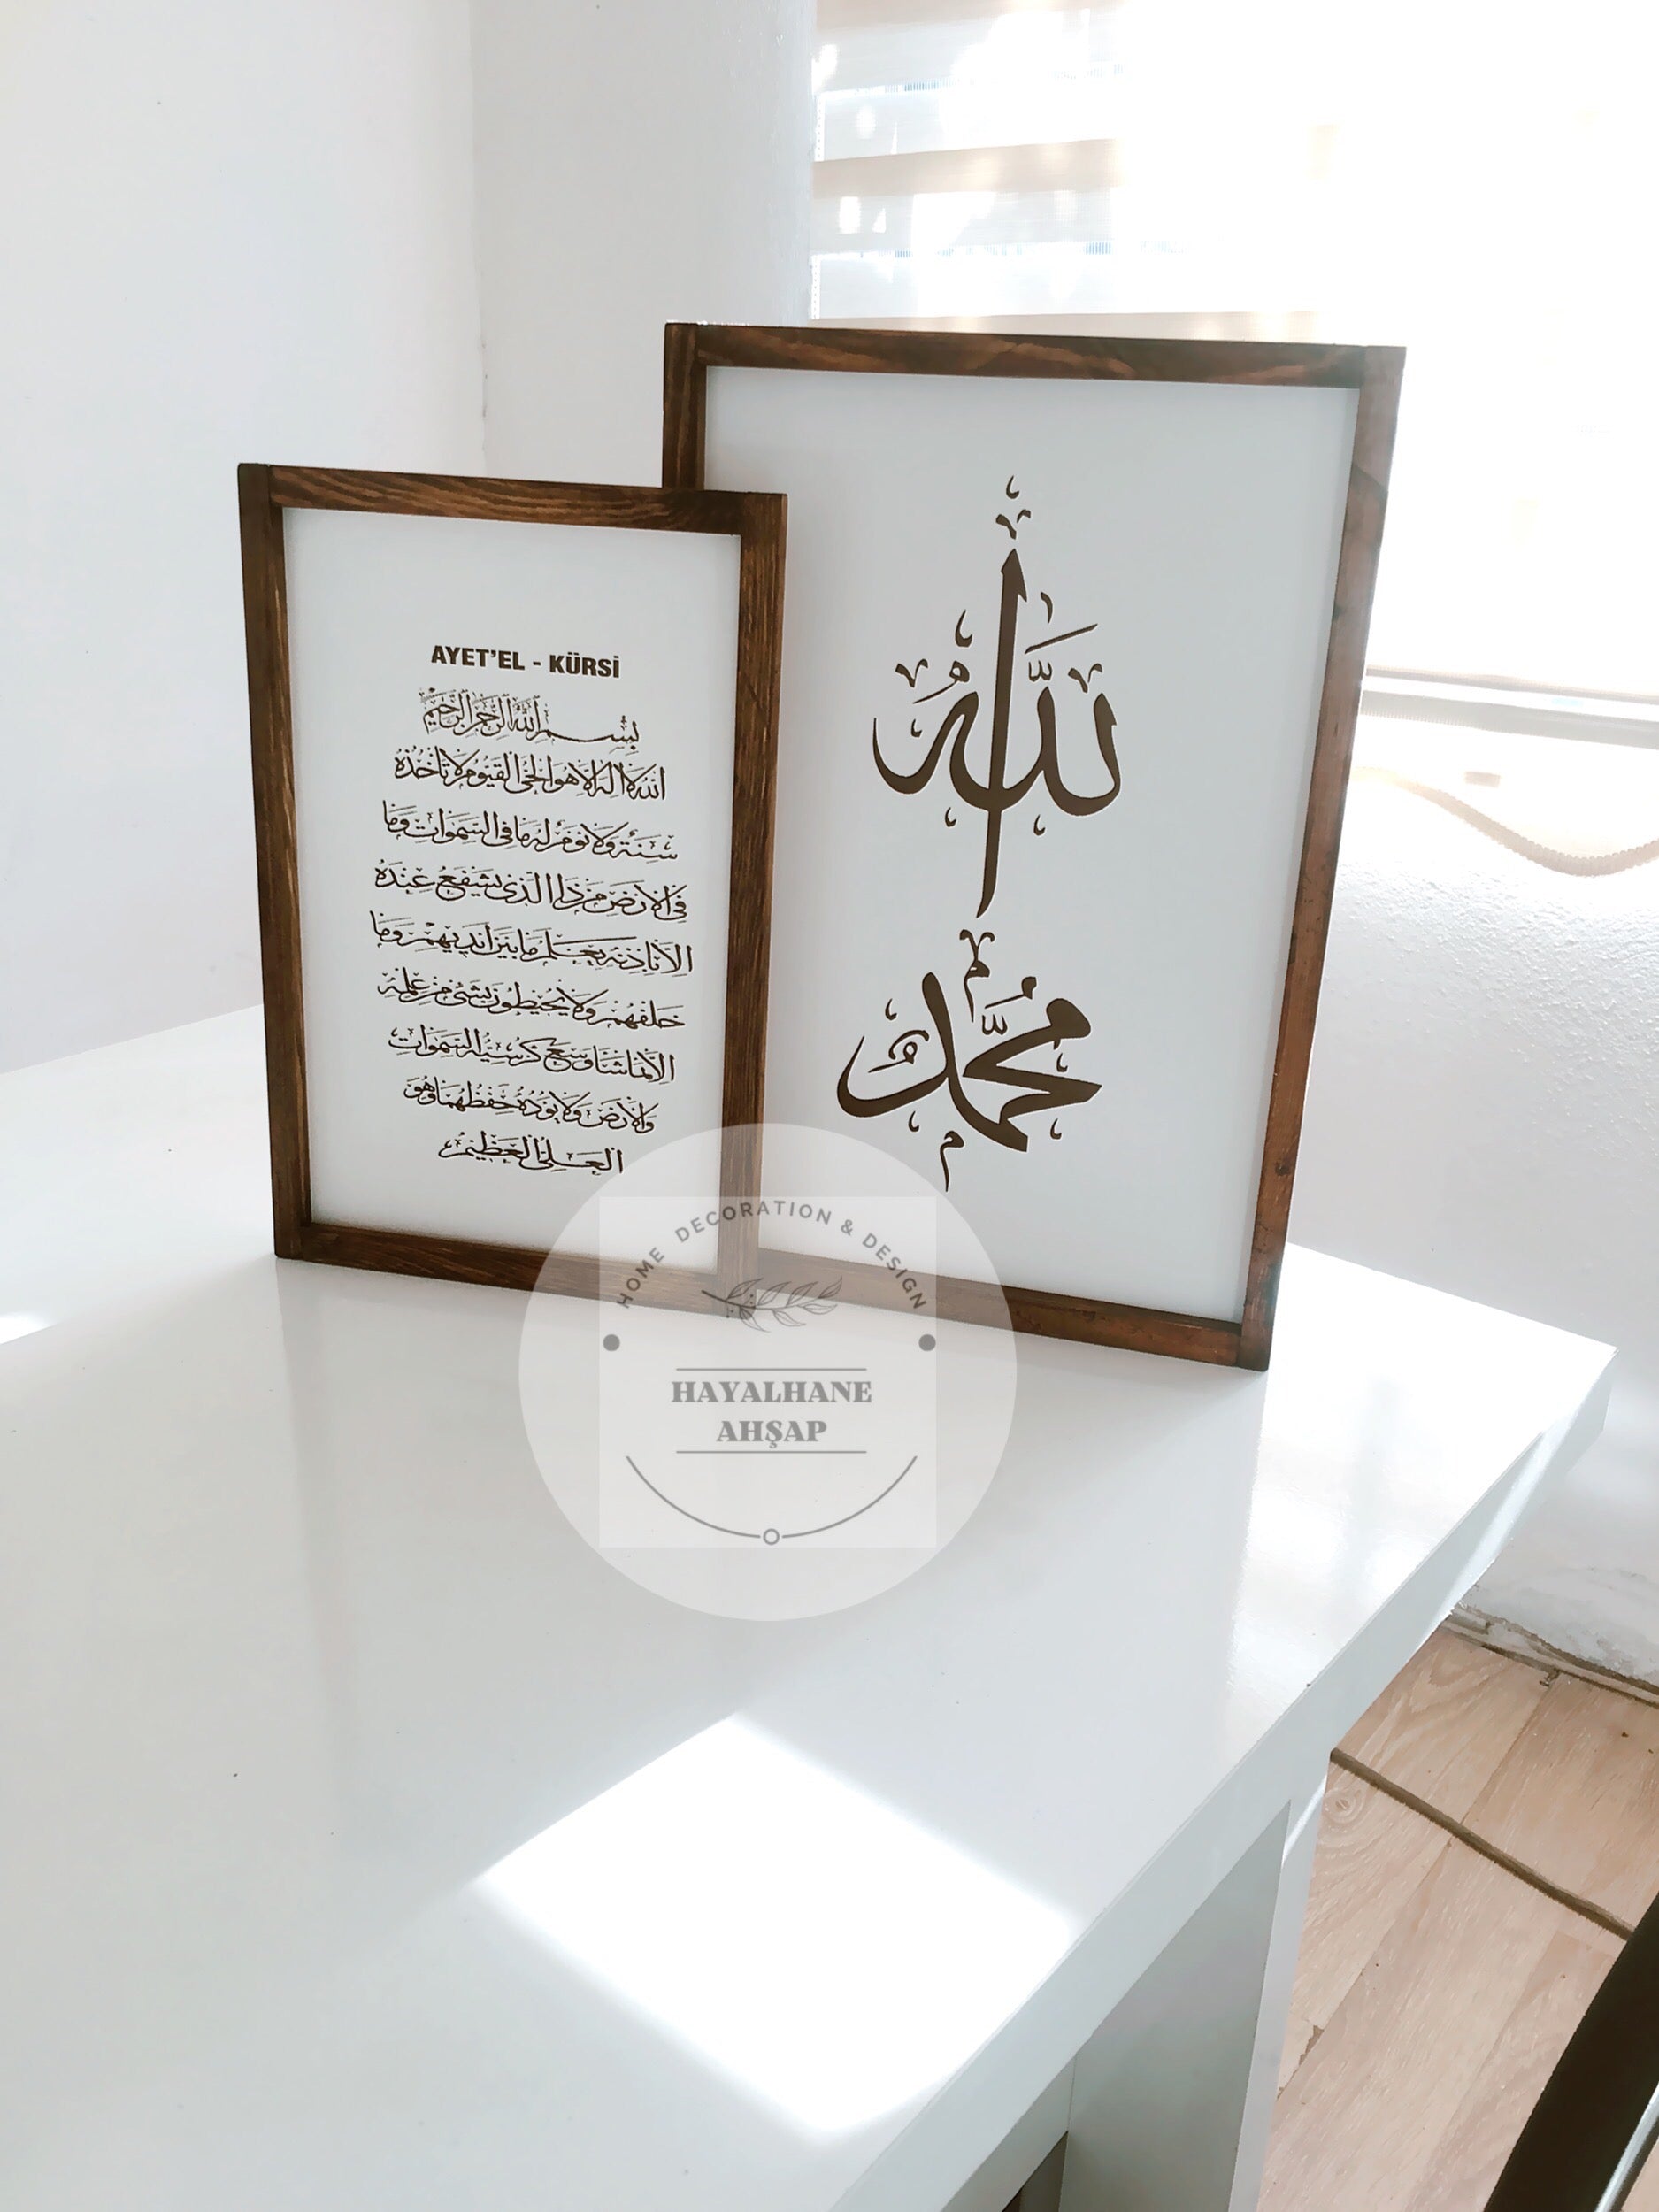 AYET'EL - KÜRSİ
بسم الله الرحمن الرحيم
الله لا اله الا هو الحي القيوم لا تأخذه
سنة ولا نوم له ما في السموات وما
في الارض من ذا الذي يشفع عنده
الا باذنه يعلم ما بين ايديهم وما
خلفهم ولا يحيطون بشئ من علمه
الا بما شا وسع كرسيه السموات
والارض ولا يؤده حفظهما وهو
العلي العظيم
الله
محمد
HOME DECORATION & DESIGN
HAYALHANE
AHŞAP